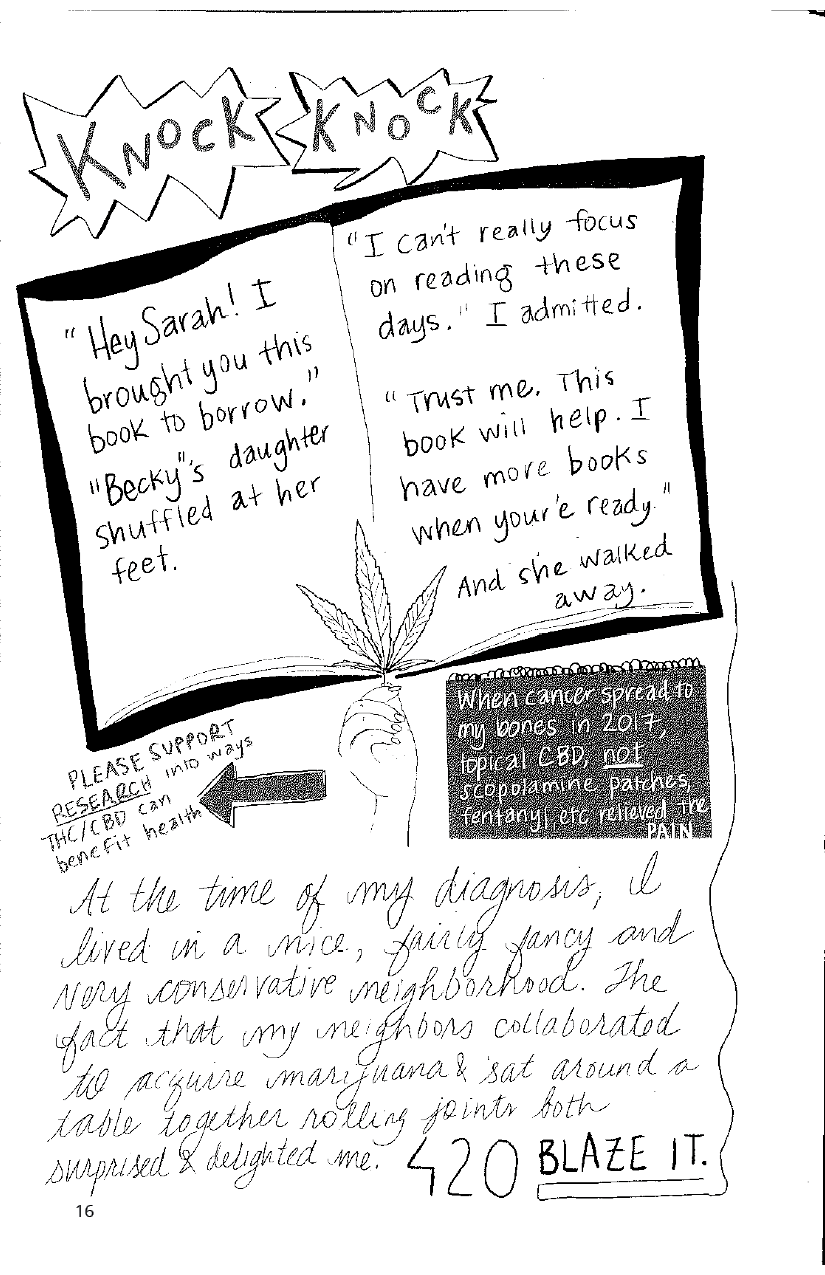 KNOCK KNOCK
"Hey Sarah! I
brought you this
book to borrow."
"Becky"'s daughter
shuffled at her
feet.
"I can't really focus
on reading these
days." I admitted.
"Trust me. This
book will help. I
have more books
when your'e ready."
And she walked
away.
When cancer spread to
my bones in 2017,
topical CBD, not
scopolamine patches,
fentanyl, etc relieved the
PAIN
PLEASE SUPPORT
RESEARCH into ways
THC/CBD can
benefit health
At the time of my diagnosis, I
lived in a nice, fairly fancy and
very conservative neighborhood. The
fact that my neighbors collaborated
to acquire marijuana & sat around a
table together rolling joints both
surprised & delighted me.
420 BLAZE IT.
16